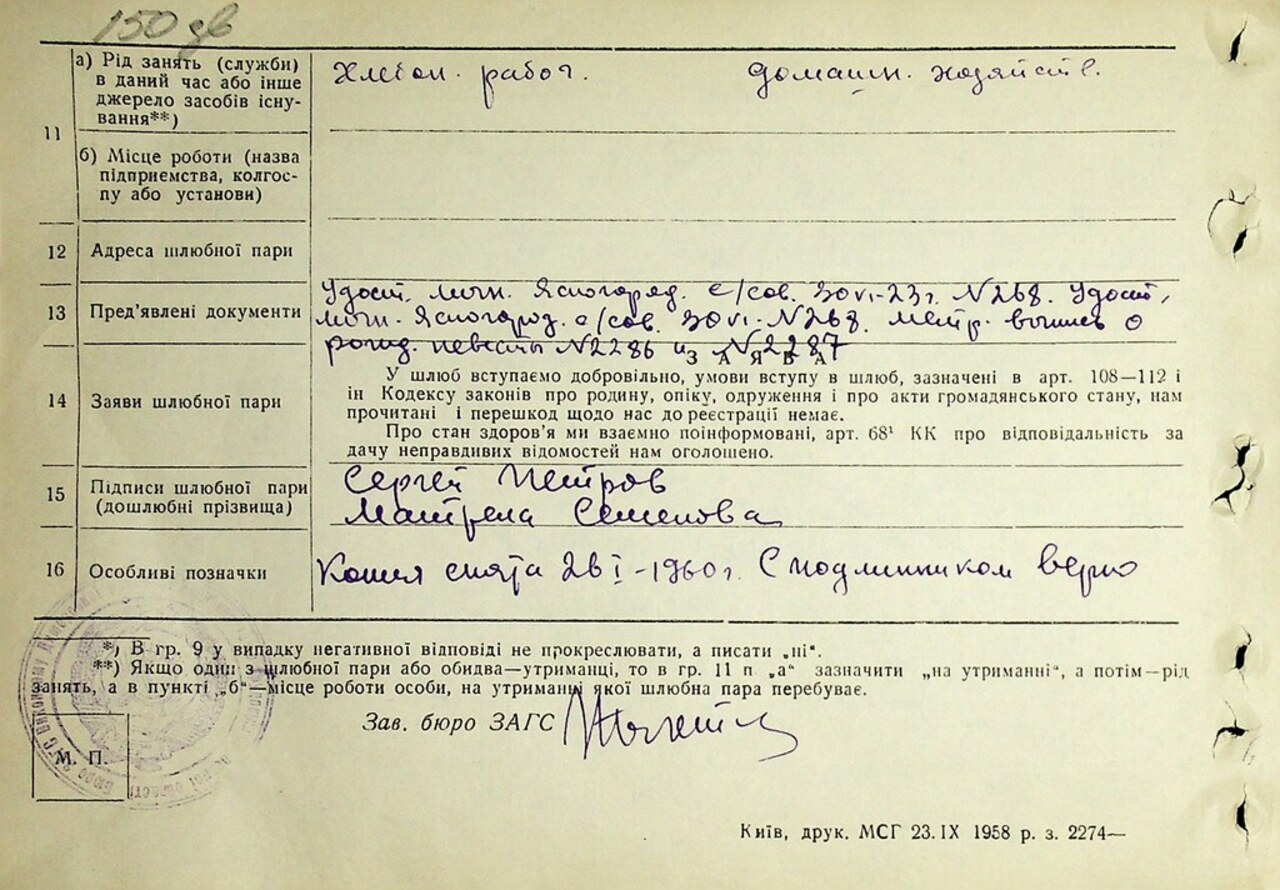 150 дв
а) Рід занять (служби)
в даний час або інше
джерело засобів існу-
вання**)
Хлебоп. рабоч.
домашн. хозяйств.
11
б) Місце роботи (назва
підприємства, колгос-
пу або установи)
12
Адреса шлюбної пари
13
Пред’явлені документи
Удост. личн. Ясногород. с/сов. 30 VI-23 г. N268. Удост.
личн. Ясногород. с/сов. 30 VI - N268. Метр. выпись о
рожд. невесты N2286 из N2287
ЗАЯВА
14
Заяви шлюбної пари
У шлюб вступаємо добровільно, умови вступу в шлюб, зазначені в арт. 108—112 і
ін Кодексу законів про родину, опіку, одруження і про акти громадянського стану, нам
прочитані і перешкод щодо нас до реєстрації немає.
Про стан здоров’я ми взаємно поінформовані, арт. 68¹ КК про відповідальність за
дачу неправдивих відомостей нам оголошено.
15
Підписи шлюбної пари
(дошлюбні прізвища)
Сергей Петров
Матрена Семенова
16
Особливі позначки
Копия снята 26 I - 1960 г. С подлинником верно
*) В гр. 9 у випадку негативної відповіді не прокреслювати, а писати „ні“.
**) Якщо один з шлюбної пари або обидва—утриманці, то в гр. 11 п „а“ зазначити „на утриманні“, а потім—рід
занять, а в пункті „б“—місце роботи особи, на утриманні якої шлюбна пара перебуває.
Зав. бюро ЗАГС
М. П.
Київ, друк. МСГ 23.IX 1958 р. з. 2274—